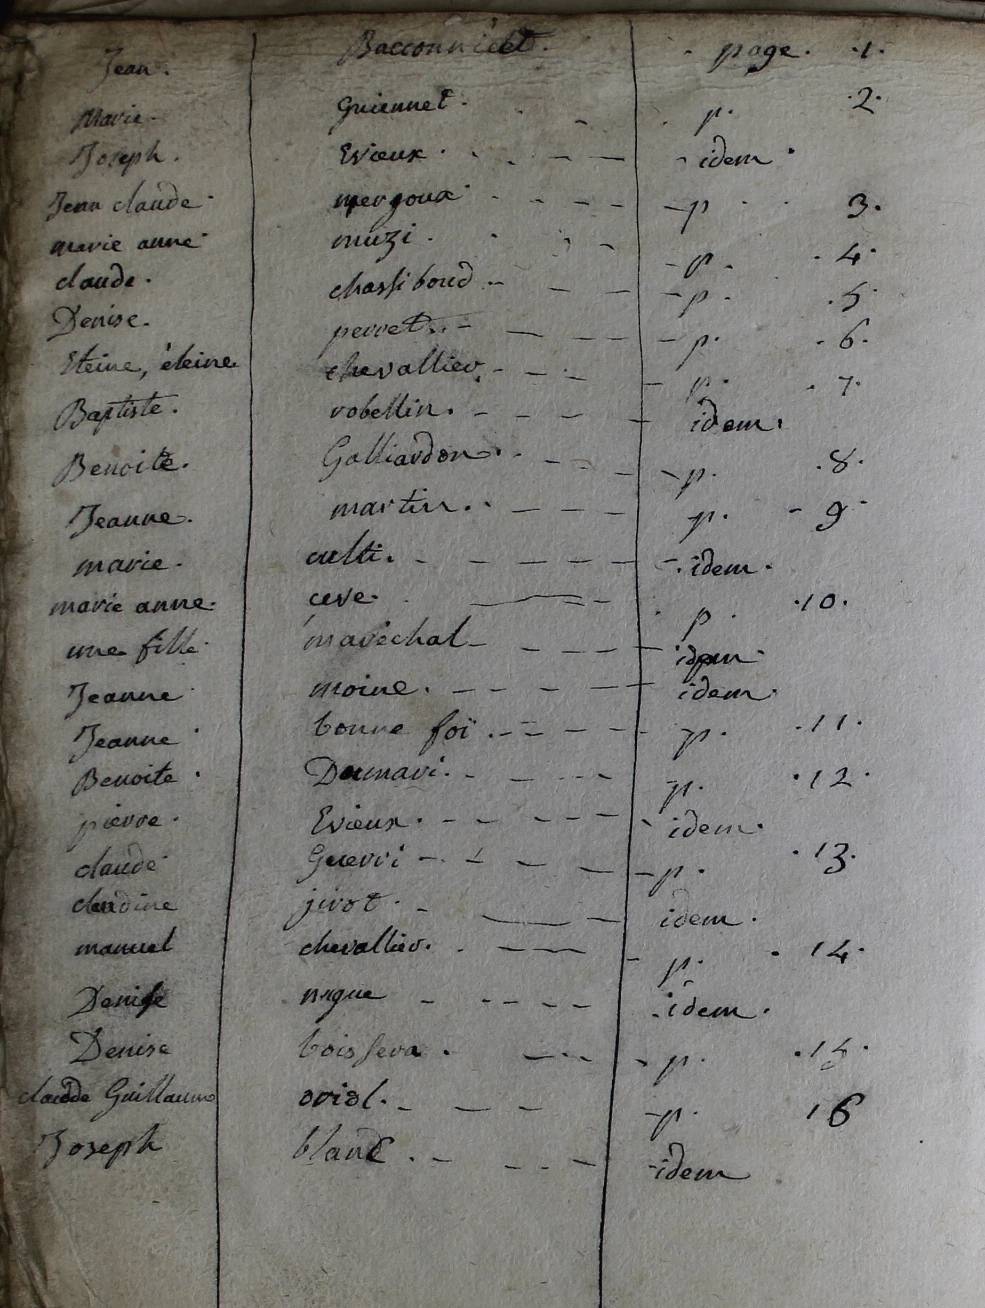 Jean. Bacconniclet. page. 1.
Marie. Guiennet. p. 2.
Joseph. Evieux. idem.
Jean claude. mergoux p. 3.
marie anne muzi. p. 4.
claude. chassiboud p. 5.
Denise. perret. p. 6.
Eteine, éteine chevallier. p. 7.
Baptiste. robellin. idem.
Benoite. Galliardon. p. 8.
Jeanne. martin. p. 9.
marie. culti. idem.
marie anne. ceve. p. 10.
une fille maréchal idem
Jeanne moine. idem.
Jeanne bonne foi p. 11.
Benoite Dounavi. p. 12.
pierre. Evieux. idem.
claude Guerri p. 13.
claudine jivot. idem.
manuel chevallier. p. 14.
Denise nigue idem.
Denise boisseva. p. 15.
claude Guillaume oriol. p. 16
Joseph blanc. idem